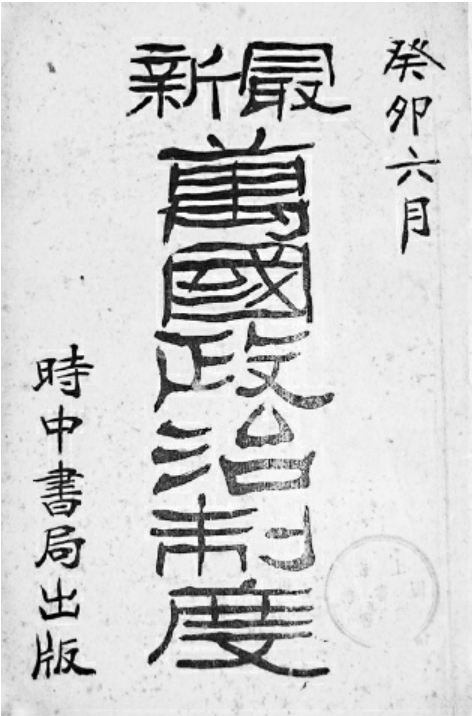 癸卯六月
最新
萬國政治制度
時中書局出版